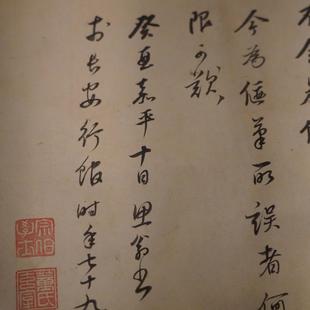 今為筆所誤者何
限可歎
癸酉嘉平十日思翁書
於長安行館時年七十九
宗伯學士
董氏玄宰